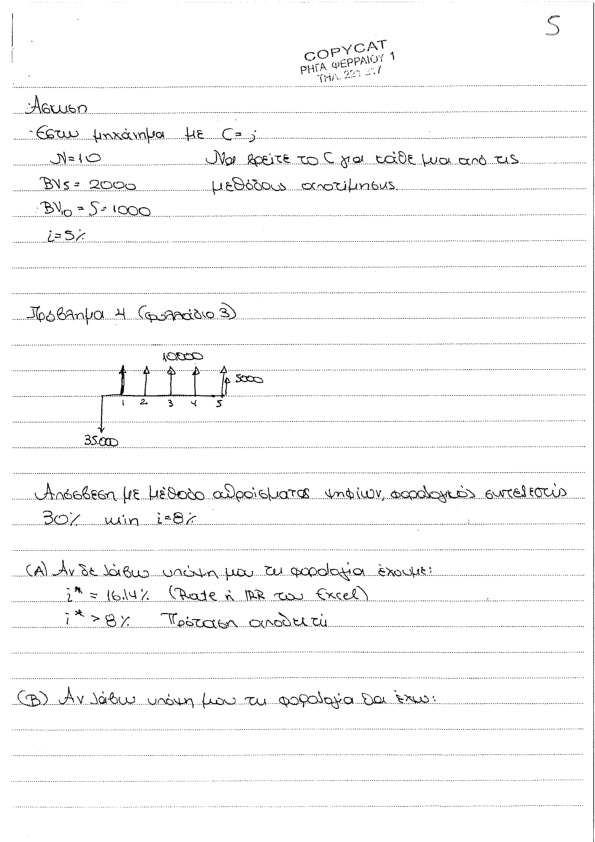 5
COPYCAT
ΡΗΓΑ ΦΕΡΡΑΙΟΥ 1
ΤΗΛ. 221
Άσκηση
Έστω μηχάνημα με C= ;
N=10 Να βρείτε το C για κάθε μια από τις
BV5 = 2000 μεθόδους αποτίμησης.
BV10 = S = 1000
i=5%
Πρόβλημα 4 (φυλλάδιο 3)
10.000
5000
1 2 3 4 5
35000
Απόσβεση με μέθοδο αθροίσματος ψηφίων, φορολογικός συντελεστής
30% min i=8%
(A) Αν δε λάβω υπόψη μου τη φορολογία έχουμε:
i* = 16.14% (Rate ή IRR του Excel)
i* > 8% Πρόταση αποδεκτή
(B) Αν λάβω υπόψη μου τη φορολογία θα έχω: